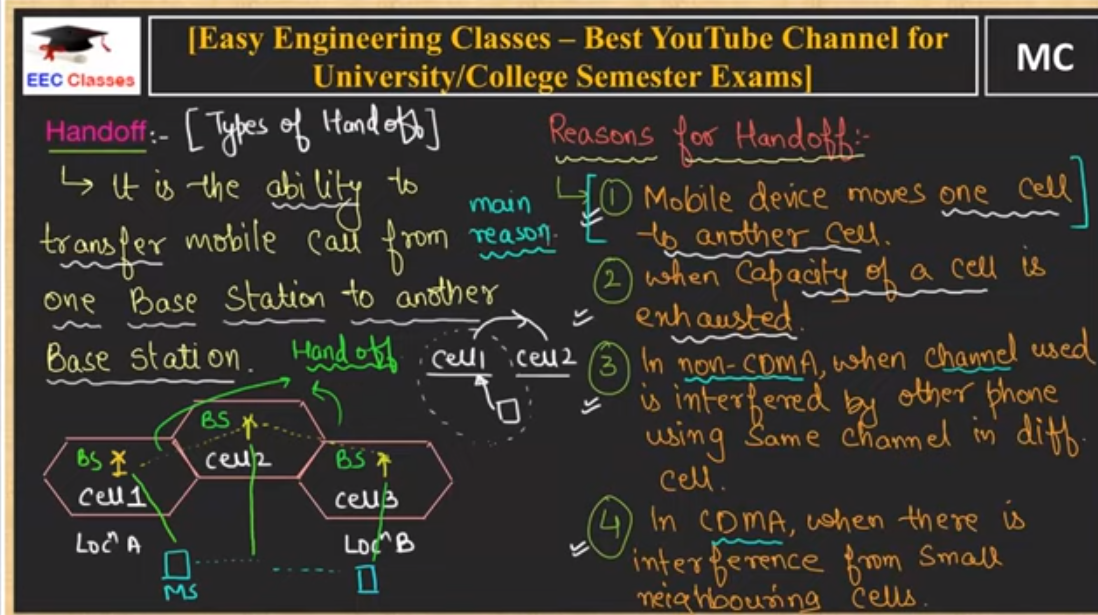 [Easy Engineering Classes – Best YouTube Channel for
University/College Semester Exams]
EEC Classes
MC
Handoff:- [Types of Handoff]
↳ It is the ability to
transfer mobile call from
one Base Station to another
Base station.
Handoff
BS
cell2
BS
cell1
BS
cell3
Locⁿ A
Locⁿ B
MS
cell1 cell2
Reasons for Handoff:-
main
reason.
↳ [① Mobile device moves one cell]
to another cell.
② when Capacity of a cell is
exhausted.
③ In non-CDMA, when channel used
is interfered by other phone
using same channel in diff.
cell.
④ In CDMA, when there is
interference from small
neighbouring cells.